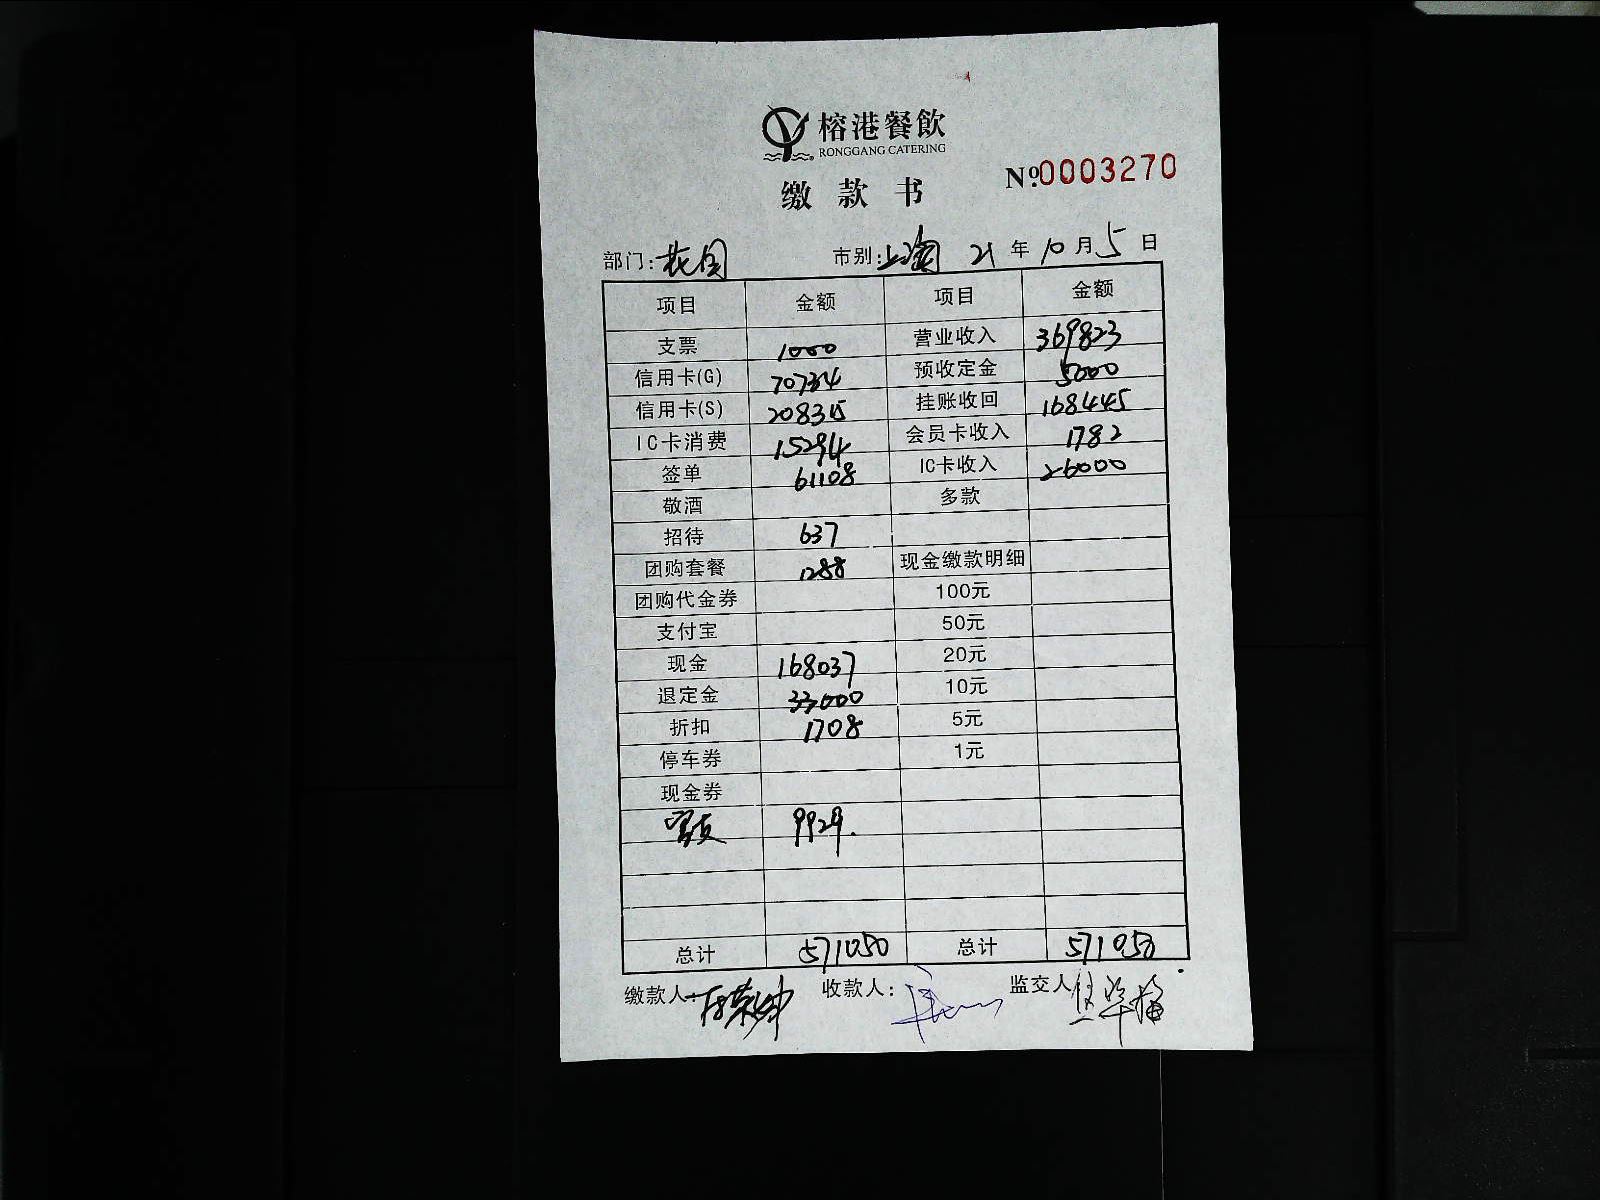 榕港餐飲
RONGGANG CATERING
缴款书
№0003270
部门:花园 市别: 21年10月5日
项目 金额 项目 金额
支票 1000 营业收入 369823
信用卡(G) 70734 预收定金 5000
信用卡(S) 208315 挂账收回 168445
IC卡消费 15294 会员卡收入 1782
签单 61108 IC卡收入 26000
敬酒 多款
招待 637
团购套餐 1288 现金缴款明细
团购代金券 100元
支付宝 50元
现金 168037 20元
退定金 33000 10元
折扣 1708 5元
停车券 1元
现金券
9929.
总计 571050 总计 571050
缴款人: 收款人: 监交人